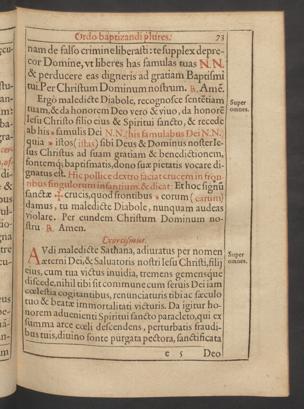 Ordo baptizandi plures. 73
nam de falso crimine liberasti: te supplex depre-
cor Domine, vt liberes has famulas tuas N.N.
& perducere eas digneris ad gratiam Baptismi
tui. Per Christum Dominum nostrum. ℟. Amen.
Ergò maledicte Diabole, recognosce sentẽtiam
tuam, & da honorem Deo vero & viuo, da honorẽ
Iesu Christo filio eius & Spiritui sancto, & recede
ab his famulis Dei N.N. his famulabus Dei N.N.
quia istos (istas) sibi Deus & Dominus noster Ie-
sus Christus ad suam gratiam & benedictionem,
fontemq́; baptismatis, dono suæ pietatis vocare di-
gnatus est. Hic pollice dextro faciat crucem in fron-
tibus singulorum infantium & dicat. Et hoc signũ
sanctæ ✠ crucis, quod frontibus eorum (earum)
damus, tu maledicte Diabole, nunquam audeas
violare. Per eundem Christum Dominum no-
strũ. ℟. Amen.
Super
omnes.
Exorcismus.
AVdi maledicte Sathana, adiuratus per nomen
æterni Dei, & Saluatoris nostri Iesu Christi, filij
eius, cum tua victus inuidia, tremens gemensque
discede, nihil tibi sit commune cum seruis Dei iam
cœlestia cogitantibus, renunciaturis tibi ac sæculo
tuo & beatæ immortalitati victuris. Da igitur ho-
norem aduenienti Spiritui sancto paracleto, qui ex
summa arce cœli descendens, perturbatis fraudi-
bus tuis, diuino fonte purgata pectora, sanctificata
Super
omnes.
e 5 Deo